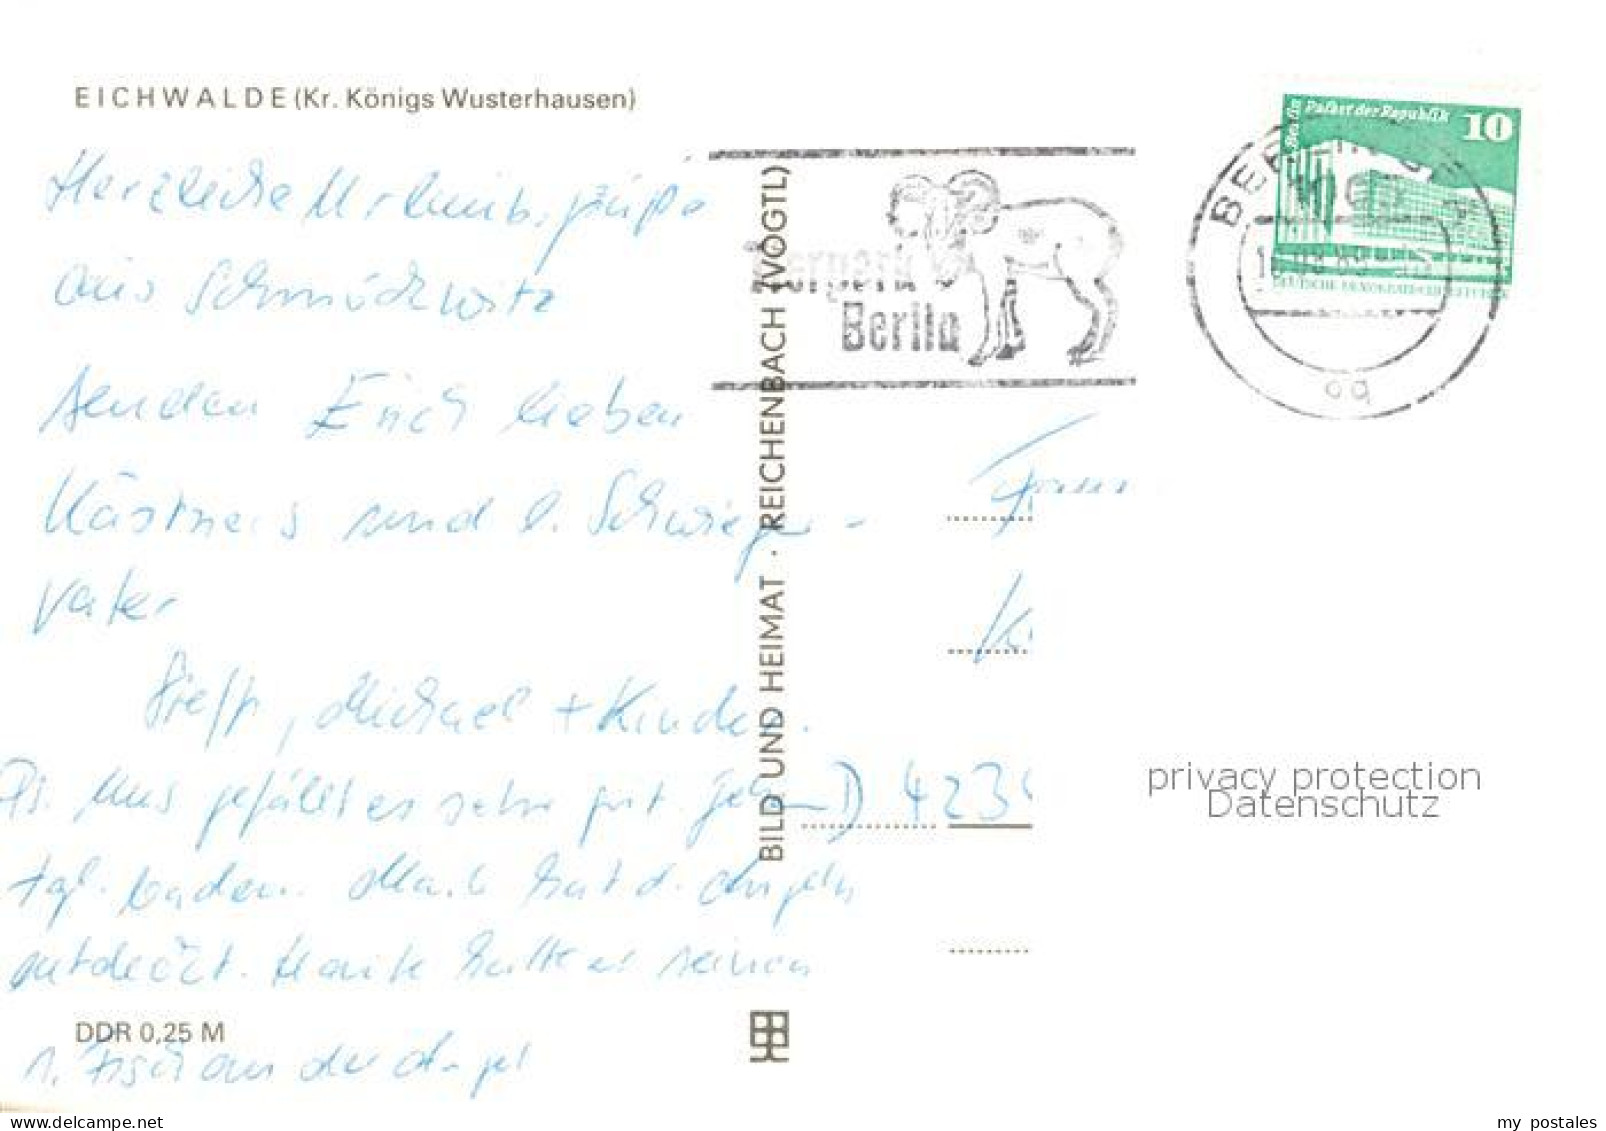 EICHWALDE (Kr. Königs Wusterhausen)
Herzliche Urlaubsgrüße
aus Schmöckwitz
senden Euch lieben
Kästners und d. Schwieger-
vater
Steff, Michael + Kinder.
Ps. Uns gefällt es sehr gut. Gehen
tgl. baden. Maik hat d. Angeln
entdeckt. Heute hatte er seinen
1. Fisch an der Angel
DDR 0,25 M
BILD UND HEIMAT · REICHENBACH (VOGTL)
Tierpark
Berlin
Berlin Palast der Republik 10
DEUTSCHE DEMOKRATISCHE REPUBLIK
BERLIN
Fam
D 423
privacy protection
Datenschutz
delcampe.net
my_postales